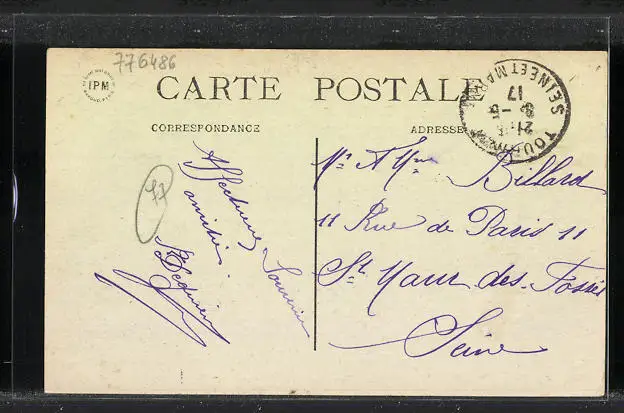 776486
IPM
CARTE POSTALE
CORRESPONDANCE
ADRESSE
TOURNAN
SEINE ET MARNE
17
77
Affectueux
Souvenir
amitiés
Mr & Mme Billard
11 Rue de Paris 11
St Maur-des-Fossés
Seine